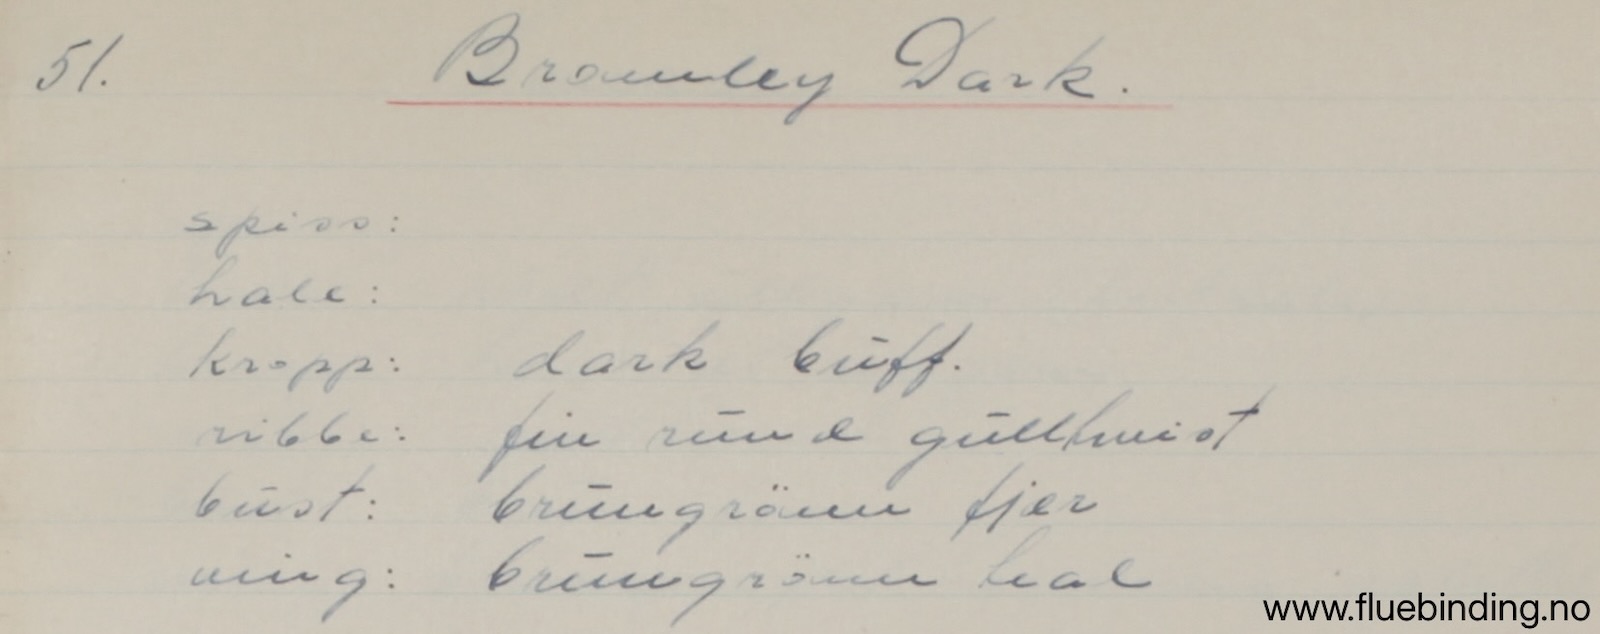 51. Bromley Dark.
spiss:
hale:
kropp: dark buff.
ribbe: fin rund gulltwist
bust: brungrönn fjær
ving: brungrönn teal
www.fluebinding.no